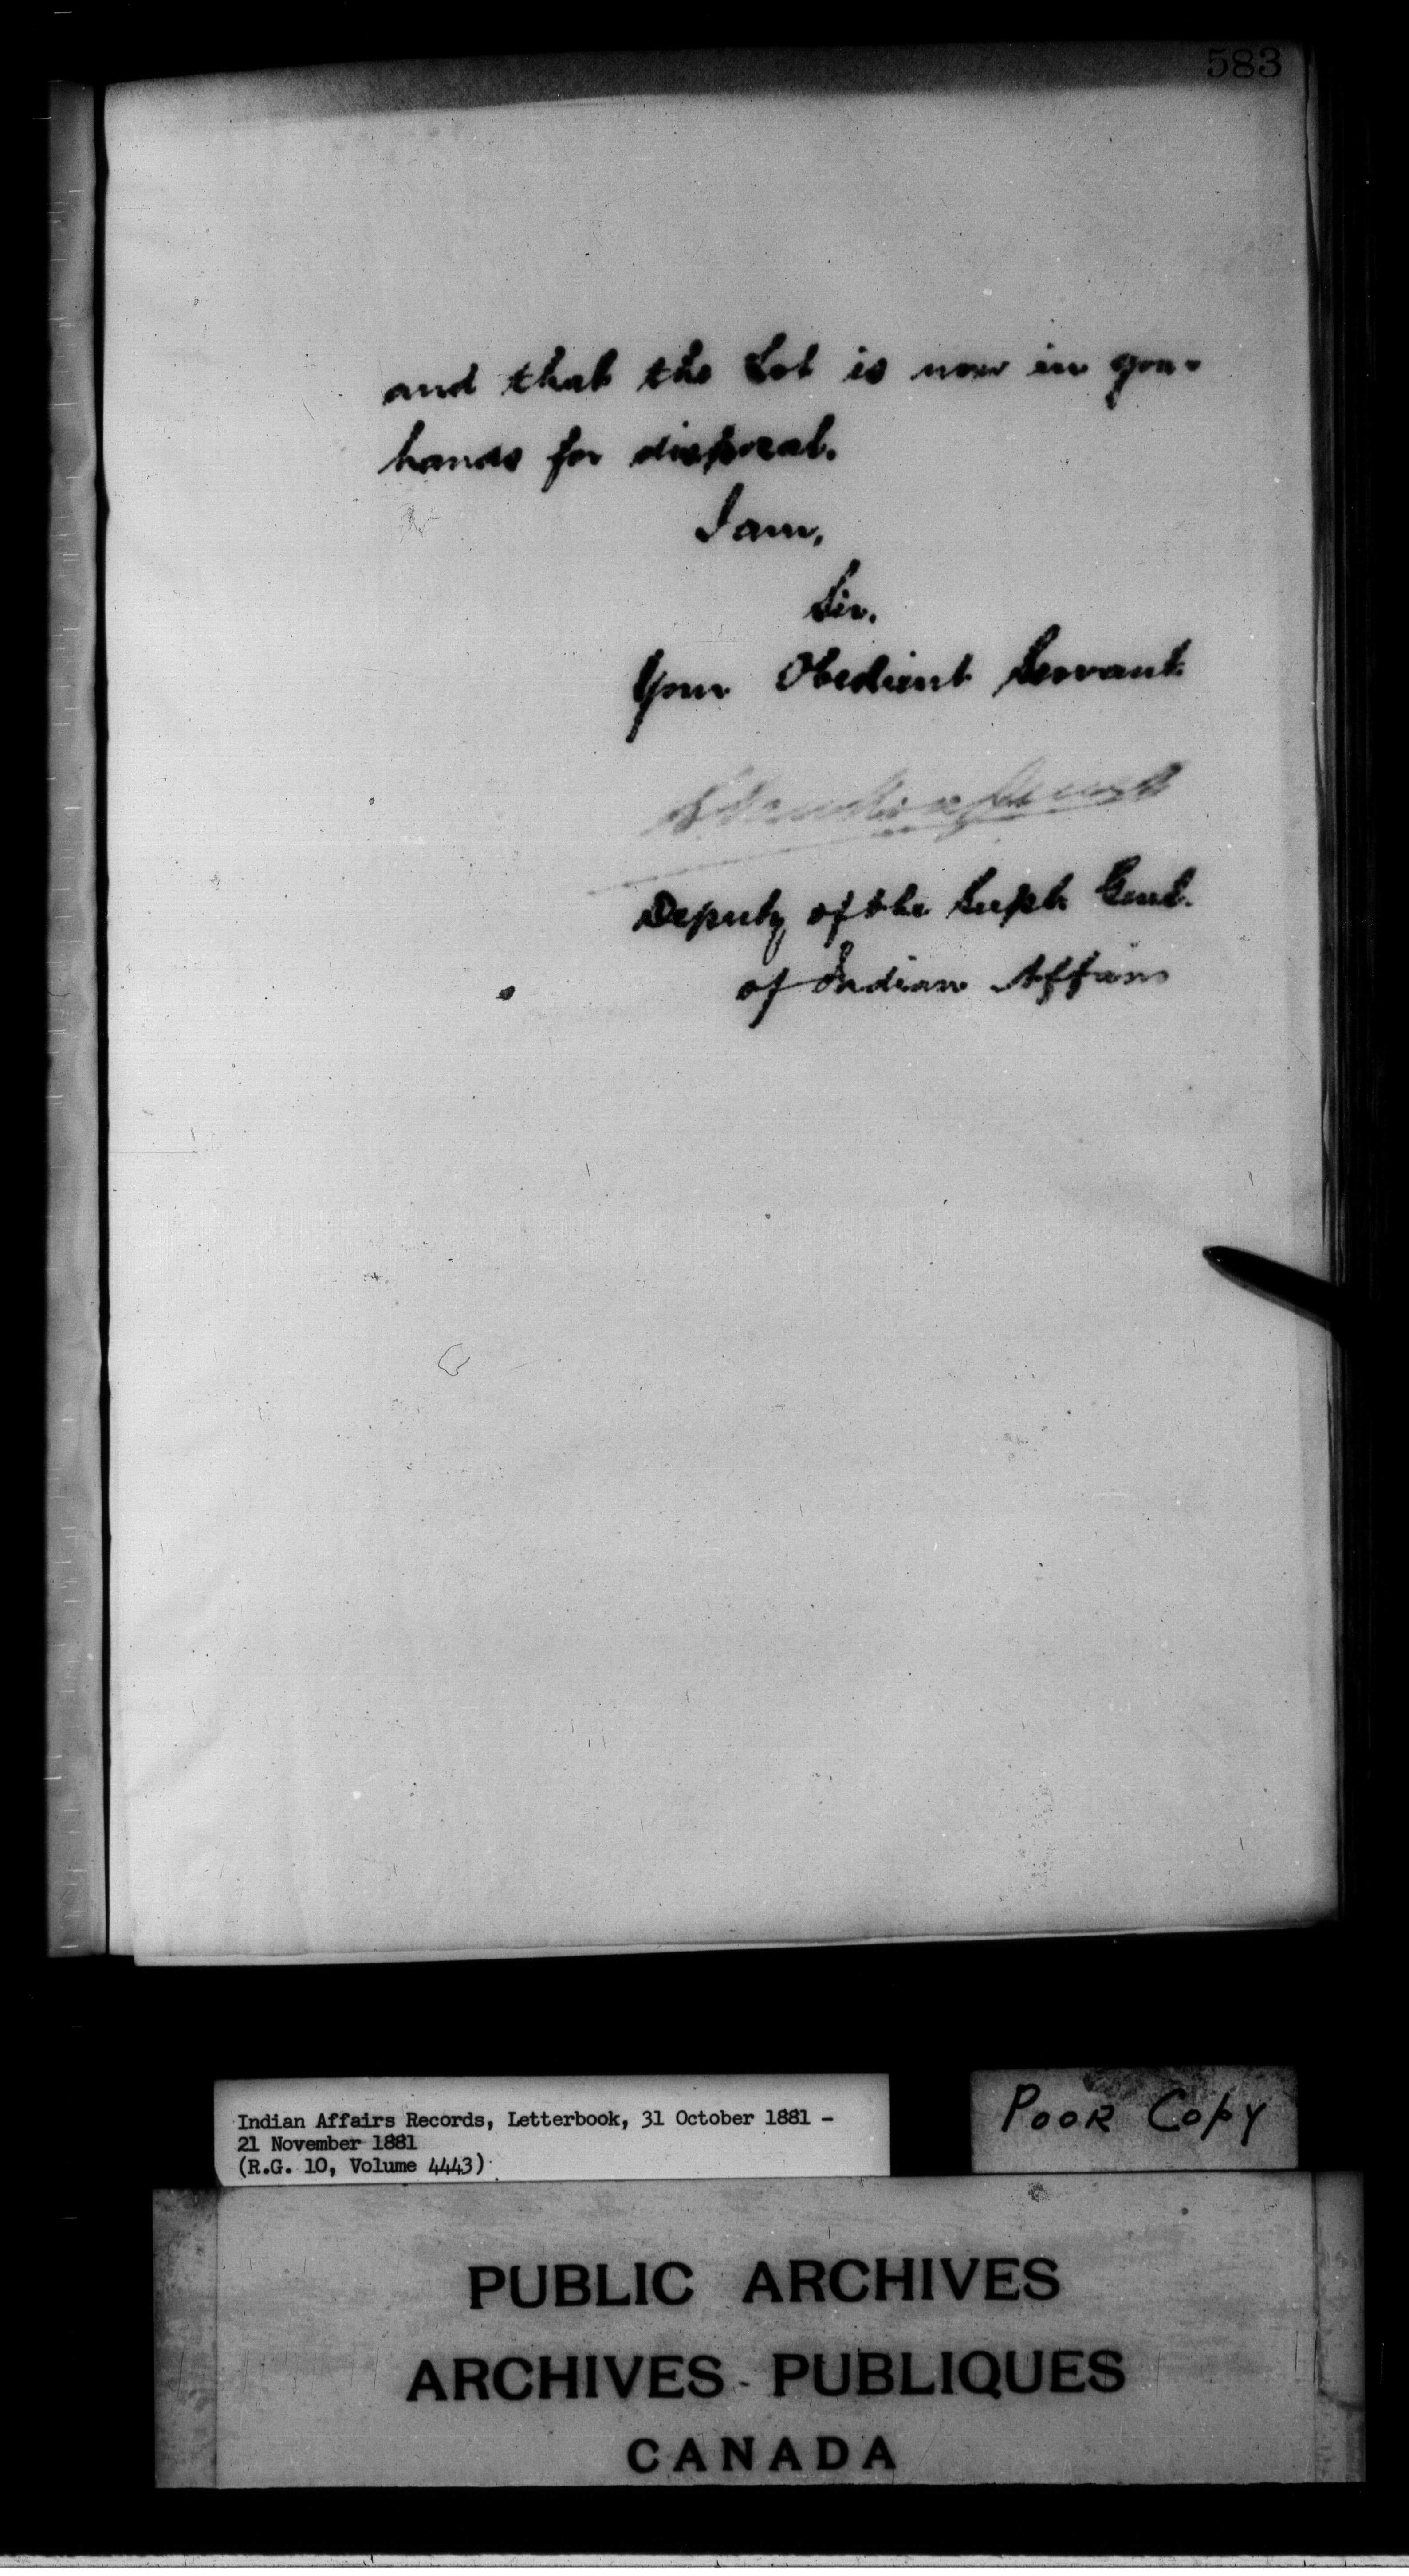 583
and that the Lot is now in your
hands for disposal.
I am,
Sir.
Your Obedient Servant
Deputy of the Supt. Genl.
of Indian Affairs
Indian Affairs Records, Letterbook, 31 October 1881 -
21 November 1881
(R.G. 10, Volume 4443)
POOR COPY
PUBLIC ARCHIVES
ARCHIVES - PUBLIQUES
CANADA